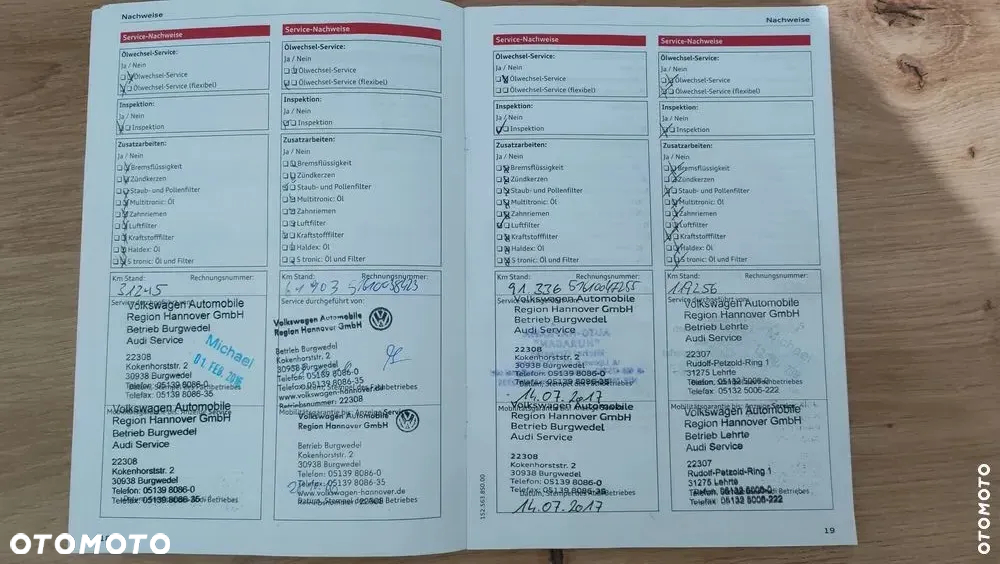 Nachweise
Service-Nachweise
Ölwechsel-Service:
Ja / Nein
Ölwechsel-Service
Ölwechsel-Service (flexibel)
Inspektion:
Ja / Nein
Inspektion
Zusatzarbeiten:
Ja / Nein
Bremsflüssigkeit
Zündkerzen
Staub- und Pollenfilter
Multitronic: Öl
Zahnriemen
Luftfilter
Kraftstofffilter
Haldex: Öl
S tronic: Öl und Filter
Km Stand: Rechnungsnummer:
31245
Service durchgeführt von:
Volkswagen Automobile
Region Hannover GmbH
Betrieb Burgwedel
Audi Service
22308
Kokenhorststr. 2
30938 Burgwedel
Telefon: 05139 8086-0
Telefax: 05139 8086-35
Michael
01. FEB. 2016
Volkswagen Automobile
Region Hannover GmbH
Betrieb Burgwedel
Audi Service
22308
Kokenhorststr. 2
30938 Burgwedel
Telefon: 05139 8086-0
Telefax: 05139 8086-35
Service-Nachweise
Ölwechsel-Service:
Ja / Nein
Ölwechsel-Service
Ölwechsel-Service (flexibel)
Inspektion:
Ja / Nein
Inspektion
Zusatzarbeiten:
Ja / Nein
Bremsflüssigkeit
Zündkerzen
Staub- und Pollenfilter
Multitronic: Öl
Zahnriemen
Luftfilter
Kraftstofffilter
Haldex: Öl
S tronic: Öl und Filter
Km Stand: Rechnungsnummer:
Service durchgeführt von:
Volkswagen Automobile
Region Hannover GmbH
Betrieb Burgwedel
Kokenhorststr. 2
30938 Burgwedel
Telefon: 05139 8086-0
Telefax: 05139 8086-35
Betriebsnummer: 22308
Volkswagen Automobile
Region Hannover GmbH
Betrieb Burgwedel
Kokenhorststr. 2
30938 Burgwedel
Telefon: 05139 8086-0
Telefax: 05139 8086-35
www.volkswagen-hannover.de
Nachweise
Service-Nachweise
Ölwechsel-Service:
Ja / Nein
Ölwechsel-Service
Ölwechsel-Service (flexibel)
Inspektion:
Ja / Nein
Inspektion
Zusatzarbeiten:
Ja / Nein
Bremsflüssigkeit
Zündkerzen
Staub- und Pollenfilter
Multitronic: Öl
Zahnriemen
Luftfilter
Kraftstofffilter
Haldex: Öl
S tronic: Öl und Filter
Km Stand: Rechnungsnummer:
91.336
Volkswagen Automobile
Region Hannover GmbH
Betrieb Burgwedel
Audi Service
22308
Kokenhorststr. 2
30938 Burgwedel
Telefon: 05139 8086-0
14.07.2017
Volkswagen Automobile
Region Hannover GmbH
Betrieb Burgwedel
Audi Service
22308
Kokenhorststr. 2
30938 Burgwedel
Telefon: 05139 8086-0
14.07.2017
152.563.850.00
Service-Nachweise
Ölwechsel-Service:
Ja / Nein
Ölwechsel-Service
Ölwechsel-Service (flexibel)
Inspektion:
Ja / Nein
Inspektion
Zusatzarbeiten:
Ja / Nein
Bremsflüssigkeit
Zündkerzen
Staub- und Pollenfilter
Multitronic: Öl
Zahnriemen
Luftfilter
Kraftstofffilter
Haldex: Öl
S tronic: Öl und Filter
Km Stand: Rechnungsnummer:
Volkswagen Automobile
Region Hannover GmbH
Betrieb Lehrte
Audi Service
22307
Rudolf-Petzold-Ring 1
31275 Lehrte
Telefon: 05132 5006-0
Telefax: 05132 5006-222
Volkswagen Automobile
Region Hannover GmbH
Betrieb Lehrte
Audi Service
22307
Rudolf-Petzold-Ring 1
31275 Lehrte
Telefon: 05132 5006-0
Telefax: 05132 5006-222
19
OTOMOTO
OTOMOTO